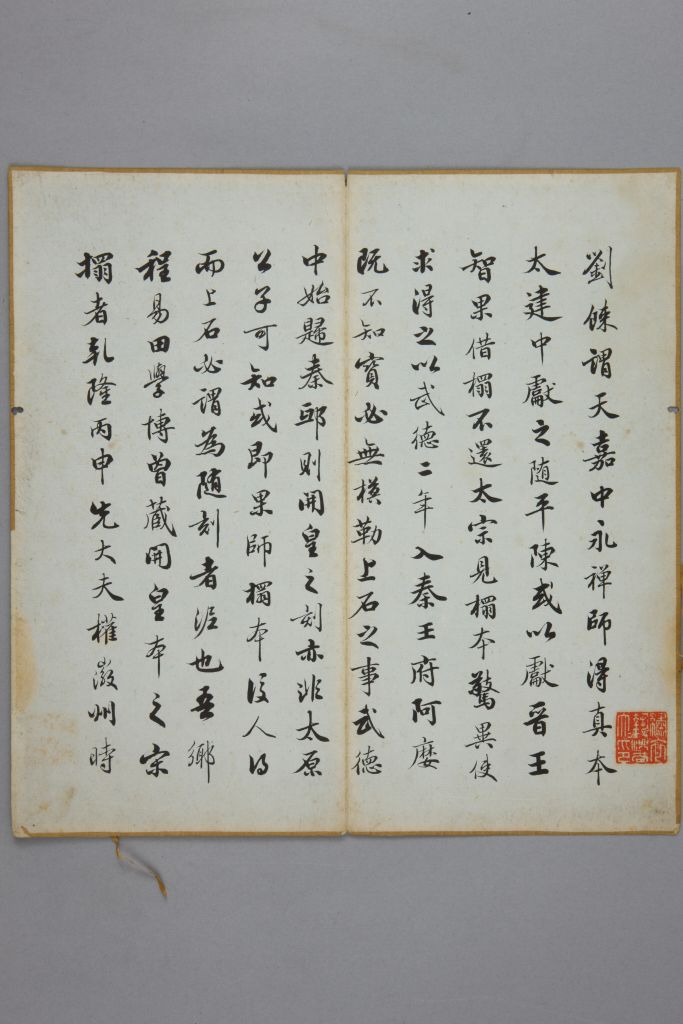 劉餗謂天嘉中永禅師得真本
太建中獻之随平陳或以獻晋王
智果借榻不還太宗見榻本驚異使
求得之以武德二年入秦王府阿麽
既不知寳必無模勒上石之事武德
中始歸秦邸則開皇之刻亦非太原
公子可知或即果師榻本後人得
而上石必謂為随刻者泥也吾鄉
程易田學博曾藏開皇本之宗
榻者乾隆丙申先大夫榷𡽪州時